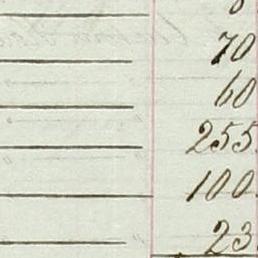 70
60
255
100
23